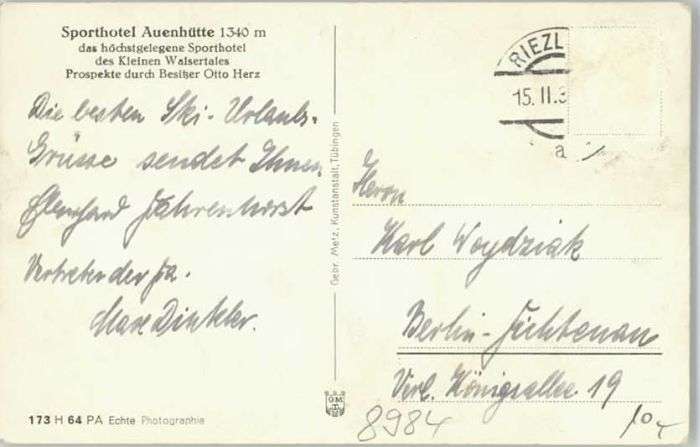 Sporthotel Auenhütte 1340 m
das höchstgelegene Sporthotel
des Kleinen Walsertales
Prospekte durch Besitzer Otto Herz
Die besten Ski-Urlaubs-
Grüsse sendet Ihnen
Eberhard Fahrenhorst
Vertreter der Fa.
Max Dinkler.
173 H 64 PA Echte Photographie
Gebr. Metz, Kunstanstalt, Tübingen
GMT
RIEZL
15. II. 3
a
Herrn
Karl Woydziak
Berlin-Fichtenau
Verl. Königsallee 19
8984